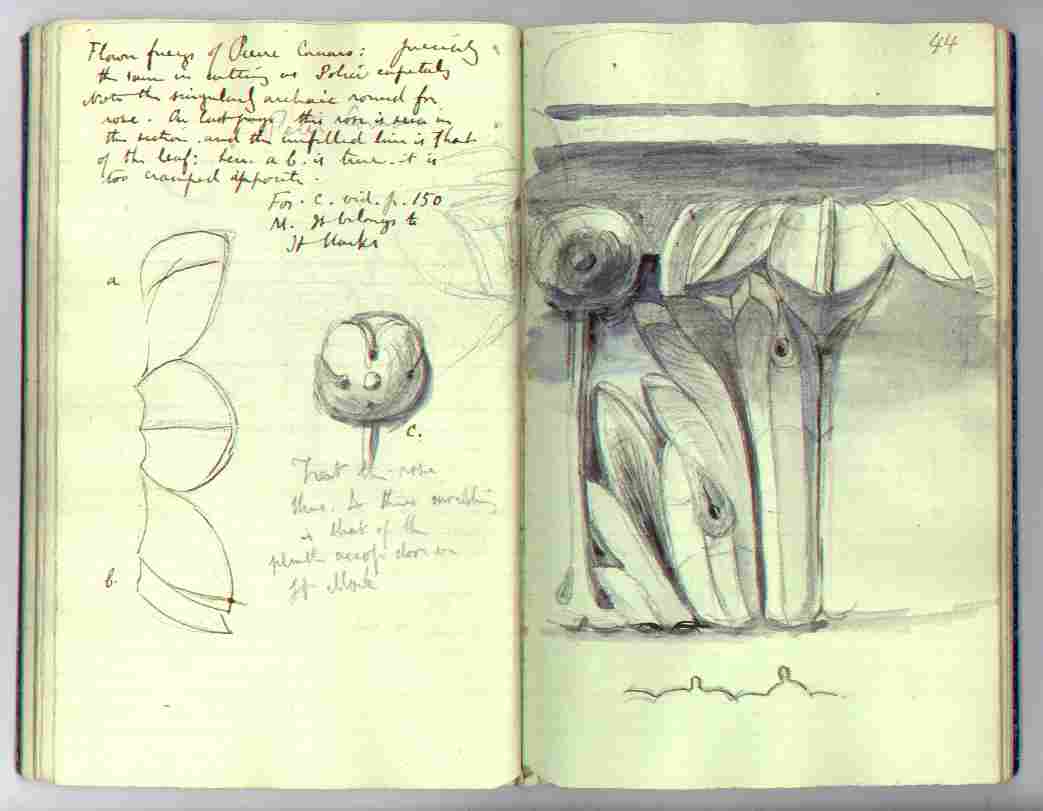 44
Flower fuezs of Pierre Cornaro: precisely
the same in cutting as Police capitals
Note the singularly archaic round for
rose. On last page this rose is seen in
the section and the unfilled line is that
of the leaf: here a b. is true. it is
too cramped opposite.
For. C. vid. p. 150
M. It belongs to
St Marks
a
c.
Treat the rose
thus.
is that of the
plinth door in
St Mark
b.